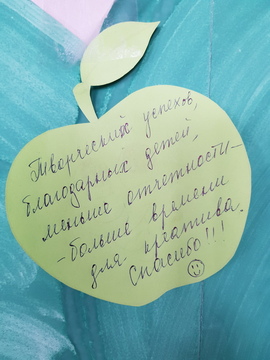 Творческих успехов,
благодарных детей,
меньше отчетности –
– больше времени
для креатива.
Спасибо!!!